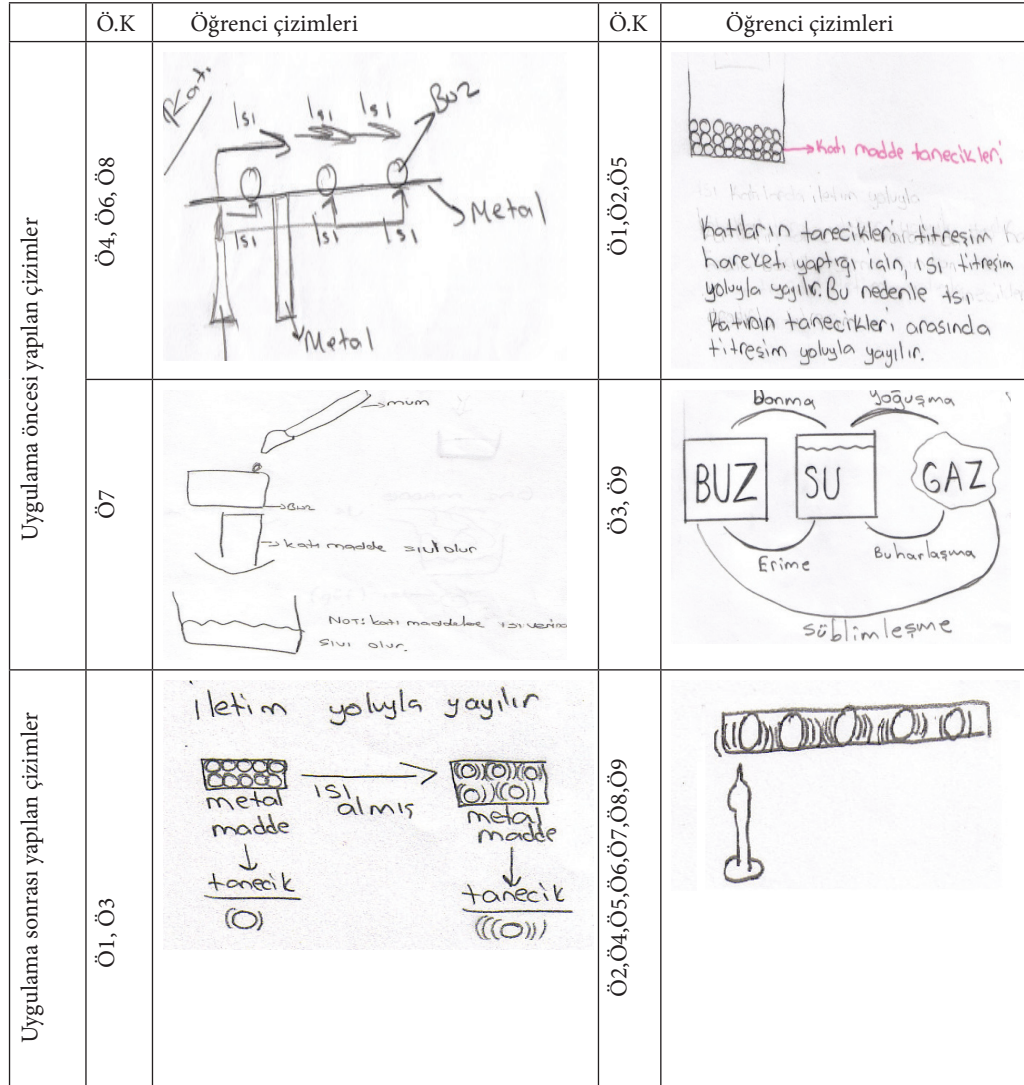 Ö.K Öğrenci çizimleri Ö.K Öğrenci çizimleri
Uygulama öncesi yapılan çizimler
Ö4, Ö6, Ö8
Katı
Isı Isı Isı Buz
Metal
Isı Isı Isı
Metal
Ö1,Ö2,Ö5
katı madde tanecikleri
katıların tanecikleri titreşim
hareketi yaptığı için, ısı titreşim
yoluyla yayılır. Bu nedenle ısı
katının tanecikleri arasında
titreşim yoluyla yayılır.
Ö7
mum
Buz
katı madde sıvı olur
NOT: katı maddelere ısı
sıvı olur.
Ö3, Ö9
Donma Yoğuşma
BUZ SU GAZ
Erime Buharlaşma
süblimleşme
Uygulama sonrası yapılan çizimler
Ö1, Ö3
iletim yoluyla yayılır
ısı
almış
metal metal
madde madde
tanecik tanecik
Ö2,Ö4,Ö5,Ö6,Ö7,Ö8,Ö9